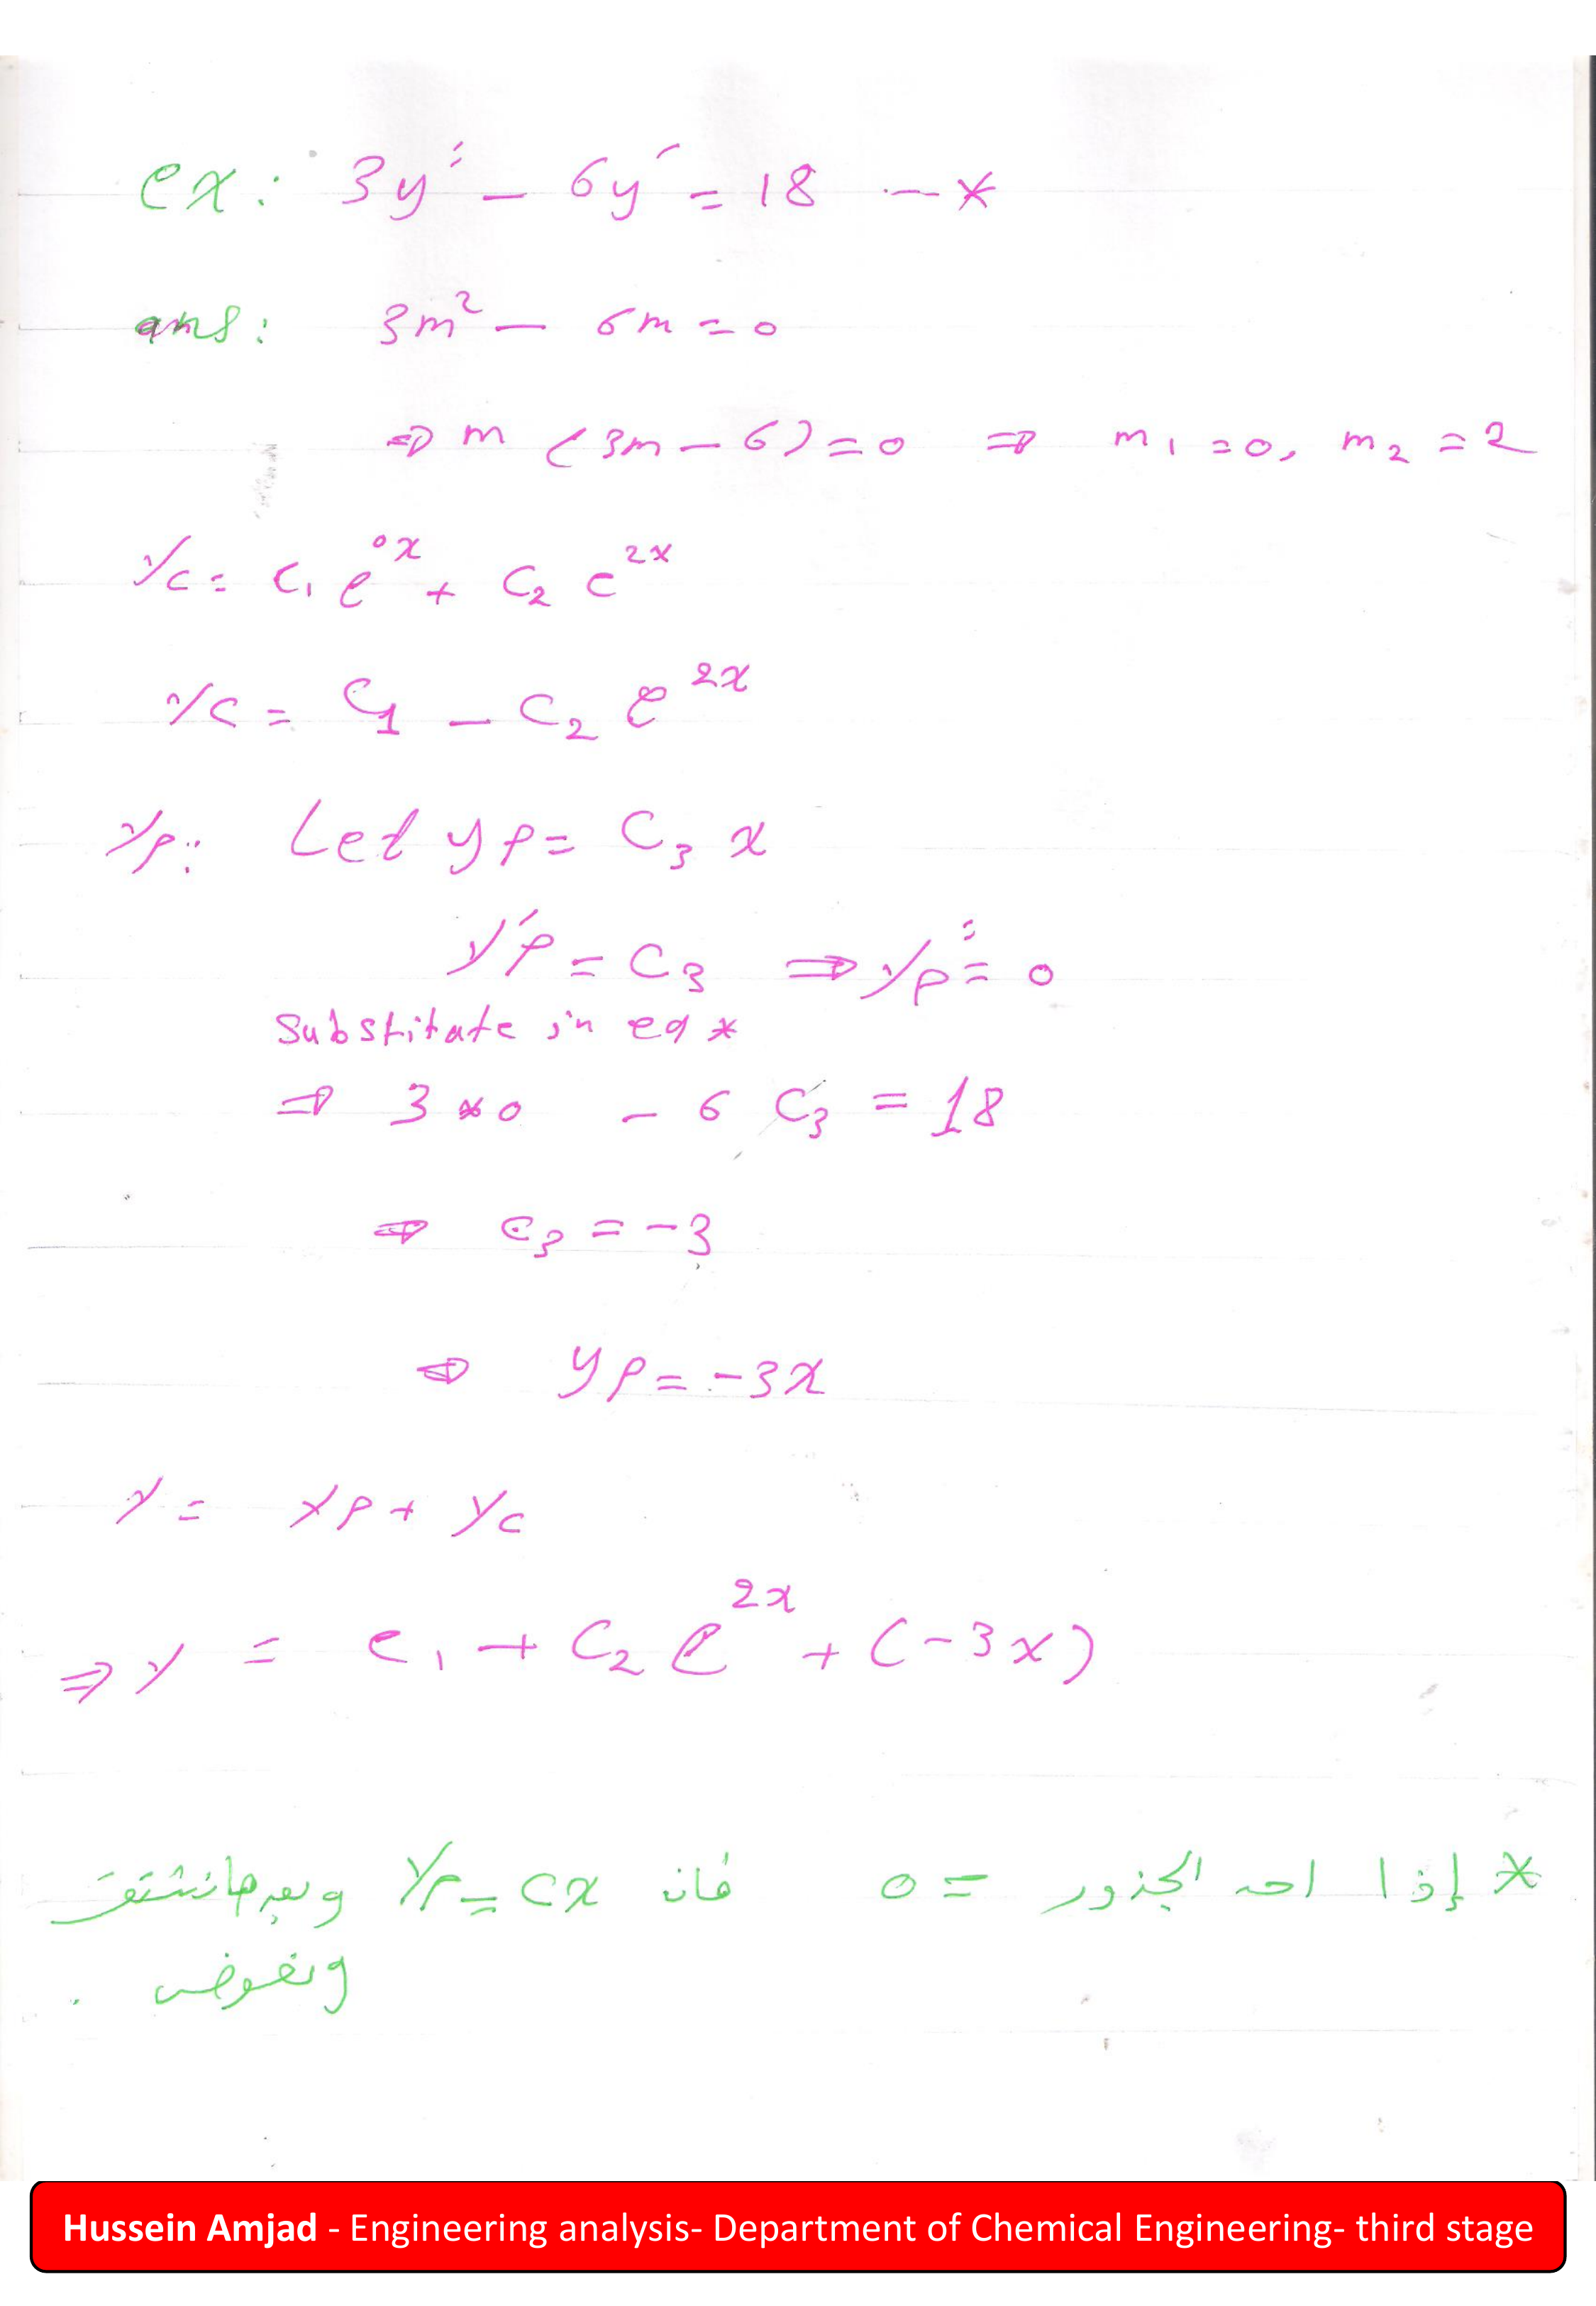 ex: 3y'' - 6y' = 18 - *
ans: 3m² - 6m = 0
⇒ m (3m - 6) = 0 ⇒ m₁ = 0, m₂ = 2
yc = c₁ e^0x + c₂ e^2x
yc = c₁ - c₂ e^2x
yp: Let yp = c₃ x
y'p = c₃ ⇒ yp'' = 0
Substitate in eq *
⇒ 3 * 0 - 6 c₃ = 18
⇒ c₃ = -3
⇒ yp = -3x
y = yp + yc
⇒ y = c₁ + c₂ e^2x + (-3x)
* إذا احد الجذور = 0 فان yp = cx وبعدها نشتق
ونعوض .
Hussein Amjad - Engineering analysis- Department of Chemical Engineering- third stage